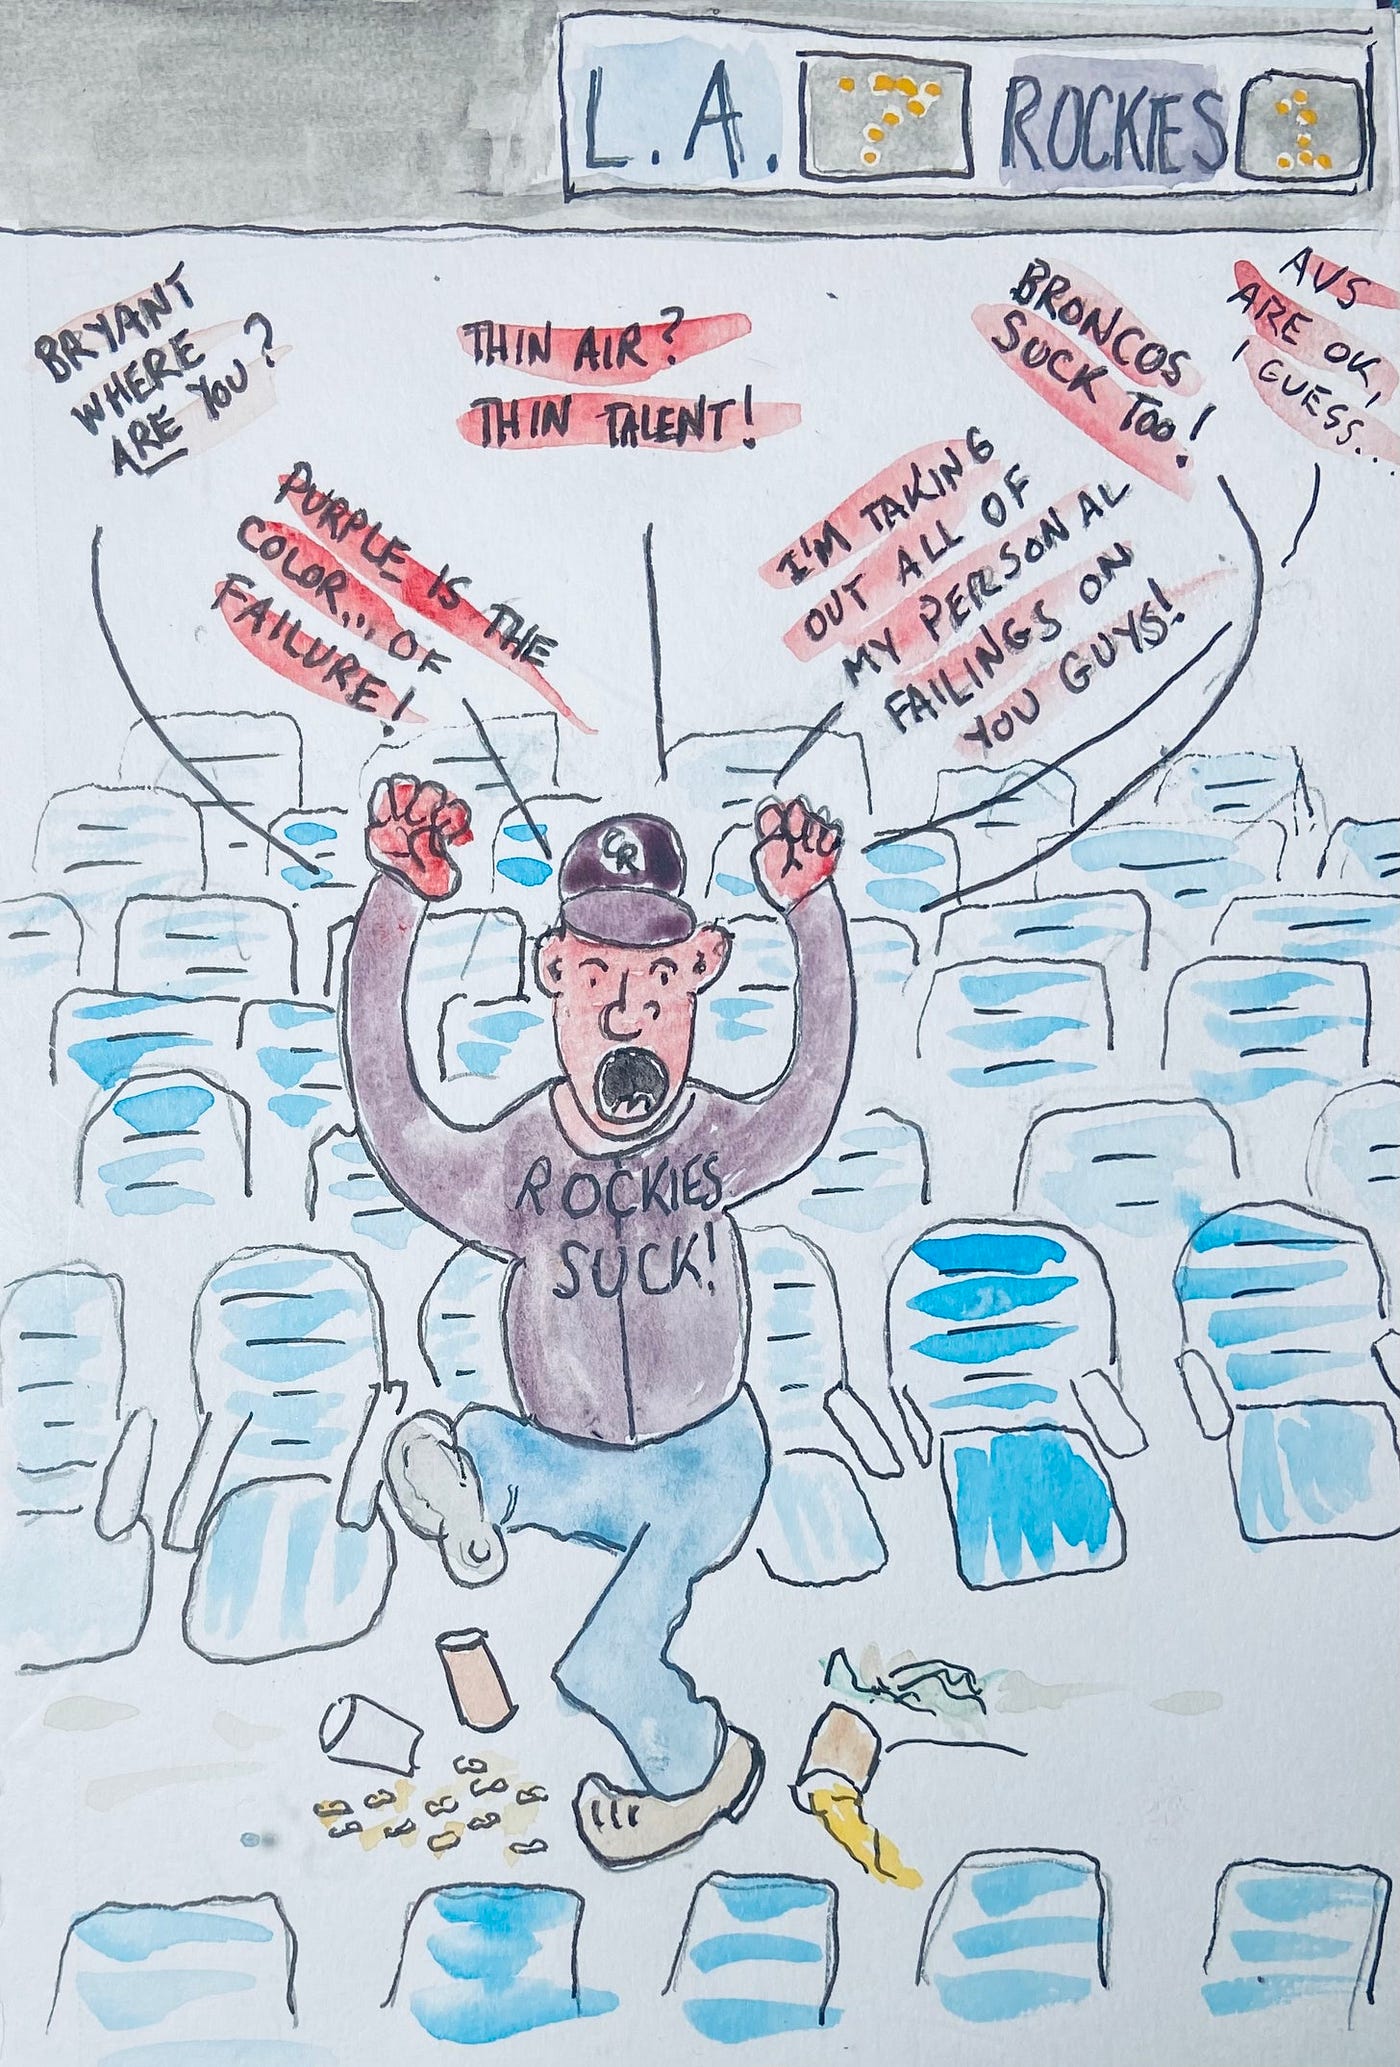 L.A. 7 ROCKIES 1
BRYANT
WHERE
ARE YOU?
THIN AIR?
THIN TALENT!
BRONCOS
SUCK TOO!
AVS
ARE OK,
I GUESS...
PURPLE IS THE
COLOR... OF
FAILURE!
I'M TAKING
OUT ALL OF
MY PERSONAL
FAILINGS ON
YOU GUYS!
CR
ROCKIES
SUCK!